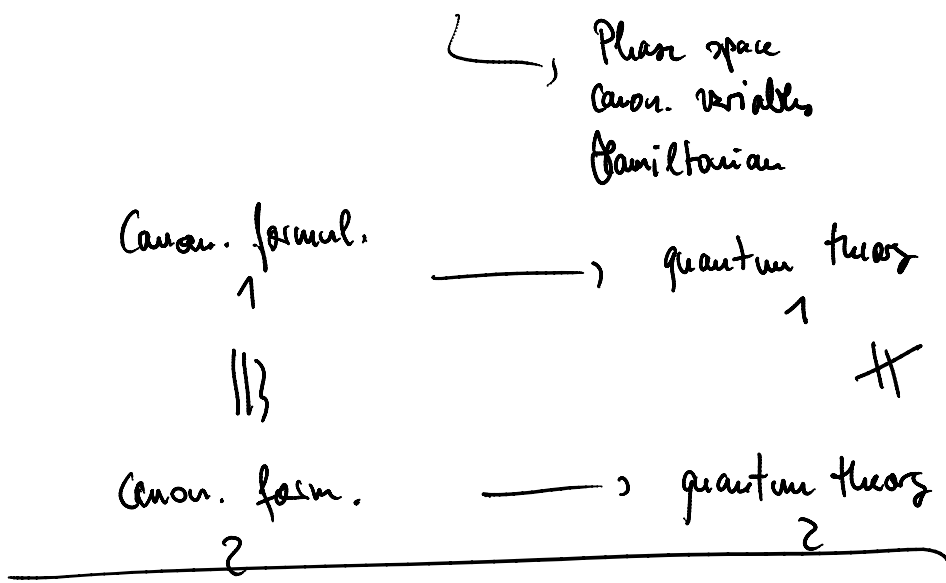 Phase space
canon. variables
Hamiltonian
Canon. formul.
1
quantum theory
1
canon. form.
2
quantum theory
2